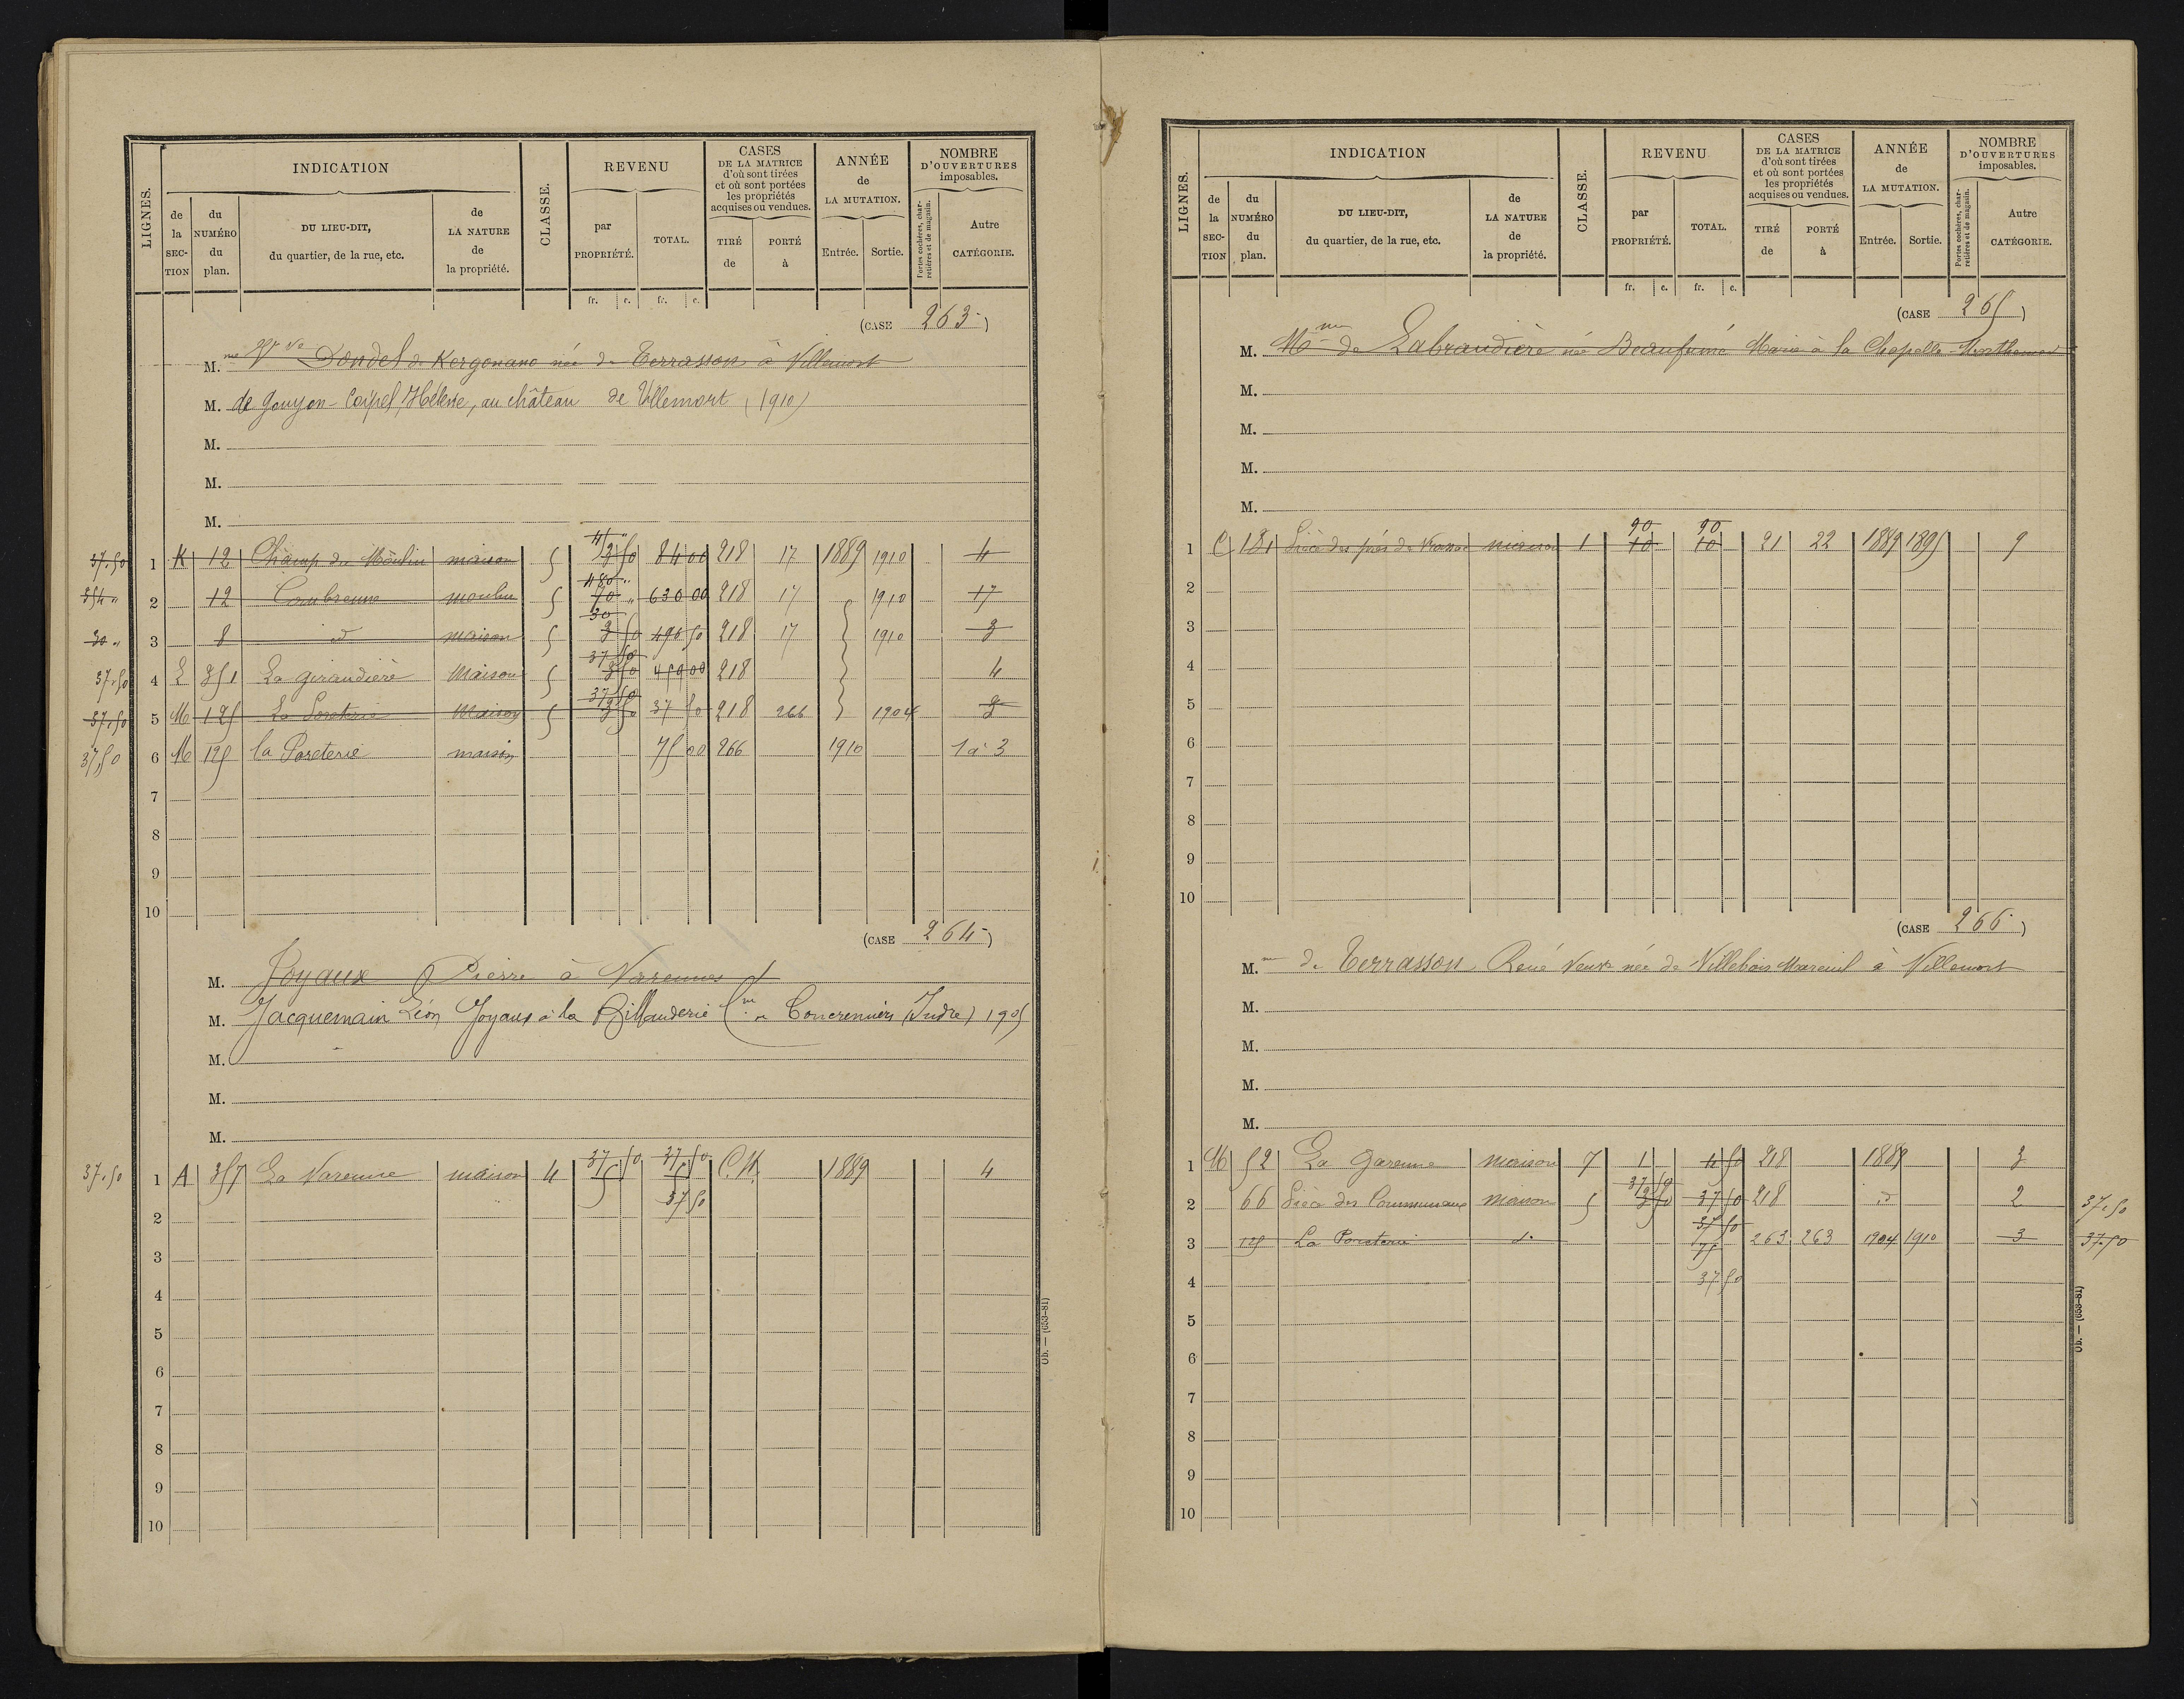 LIGNES. INDICATION CLASSE. REVENU CASES DE LA MATRICE d'où sont tirées et où sont portées les propriétés acquises ou vendues. ANNÉE de LA MUTATION. NOMBRE D'OUVERTURES imposables.
de la SECTION du NUMÉRO du plan. DU LIEU-DIT, du quartier, de la rue, etc. de LA NATURE de la propriété. par PROPRIÉTÉ. TOTAL. TIRÉ de PORTÉ à Entrée. Sortie. Portes cochères, charretières et de magasin. Autre CATÉGORIE.
fr. c. fr. c.
(CASE 263)
M.me Vve Dondel de Kergonano née de Terrasson à Villemort
M. de Gouyon-Coipel, Hélène, au château de Villemort (1910)
M.
M.
M.
37.50 1 K 12 Champ du Moulin maison 5 50 84 00 218 17 1889 1910 4
354 " 2 12 Combreuse moulin 5 480 " 70 " 630 00 218 17 1910 17
30 " 3 8 d maison 5 30 3 50 496 50 218 17 1910 3
37.50 4 E 351 La giraudière Maison 5 37 50 3 50 459 00 218 4
37.50 5 M 125 La Poreterie Maison 5 37 50 3 50 37 50 218 266 1904 3
37,50 6 M 125 la Poreterie maison 75 00 266 1910 1 à 3
7
8
9
10
(CASE 264)
M. Joyaux Pierre à Varennes
M. Jacquemain Léon Joyaux à la Rillauderie Cne de Concremiers (Indre) 1905
M.
M.
M.
37.50 1 A 357 La Varenne maison 4 37 50 5 37 50 5 C.N. 1889 4
2 37 50
3
4
5
6
7
8
9
10
Ob. — (653-81)
LIGNES. INDICATION CLASSE. REVENU CASES DE LA MATRICE d'où sont tirées et où sont portées les propriétés acquises ou vendues. ANNÉE de LA MUTATION. NOMBRE D'OUVERTURES imposables.
de la SECTION du NUMÉRO du plan. DU LIEU-DIT, du quartier, de la rue, etc. de LA NATURE de la propriété. par PROPRIÉTÉ. TOTAL. TIRÉ de PORTÉ à Entrée. Sortie. Portes cochères, charretières et de magasin. Autre CATÉGORIE.
fr. c. fr. c.
(CASE 265)
M. Mme de Labraudière née Beaufumé Marie à la Chapelle-Monthemer
M.
M.
M.
M.
1 C 181 Pièce des prés de maison 1 90 10 90 10 21 22 1889 1895 9
2
3
4
5
6
7
8
9
10
(CASE 266)
M. de Terrasson René Veuve née de Villebois Mareuil à Villemort
M.
M.
M.
M.
1 M 52 La Garenne maison 7 1 4 50 218 1889 3
2 66 Pièce des Communaux maison 5 37 50 3 50 37 50 218 d 2 37.50
3 125 La Poreterie d. 37 50 75 263 263 1904 1910 3 37.50
4 37 50
5
6
7
8
9
10
Ob. — (653-81)